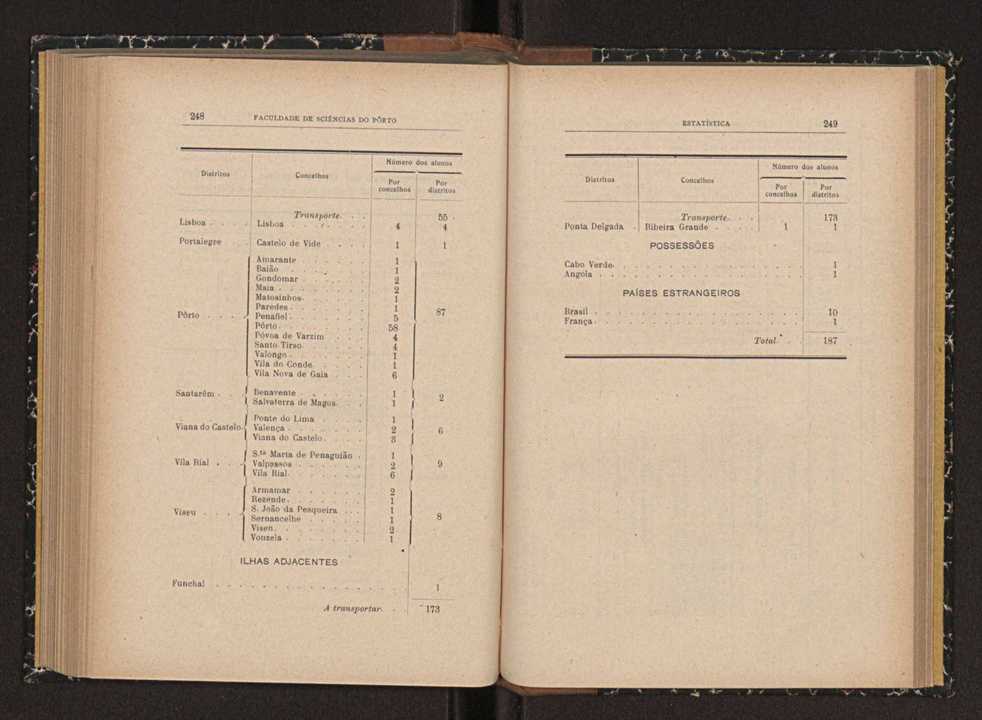 248 FACULDADE DE SCIÊNCIAS DO PÔRTO
Distritos Concelhos Número dos alunos
Por concelhos Por distritos
Transporte. . . 55
Lisboa . . . . Lisboa . . . . . . 4 4
Portalegre . . Castelo de Vide . . . 1 1
Amarante . . . . . 1
Baião . . . . . . 1
Gondomar . . . . . 2
Maia . . . . . . . 2
Matosinhos. . . . . 1
Paredes . . . . . . 1
Pôrto . . . . Penafiel. . . . . . 5 87
Pôrto . . . . . . . 58
Póvoa de Varzim . . . 4
Santo Tirso. . . . . 4
Valongo . . . . . . 1
Vila do Conde. . . . 1
Vila Nova de Gaia . . . 6
Santarêm . . Benavente . . . . . 1
Salvaterra de Magos. . . 1 2
Ponte do Lima . . . . 1
Viana do Castelo. Valença . . . . . . 2 6
Viana do Castelo. . . . 3
S.ta Maria de Penaguião . 1
Vila Rial . . . Valpassos . . . . . 2 9
Vila Rial. . . . . . 6
Armamar . . . . . 2
Rezende. . . . . . 1
S. João da Pesqueira . . . 1
Viseu . . . . Sernancelhe . . . . 1 8
Viseu. . . . . . . 2
Vouzela . . . . . . 1
ILHAS ADJACENTES
Funchal . . . . . . . . . . . . . 1
A transportar. . . 173
ESTATÍSTICA 249
Distritos Concelhos Número dos alunos
Por concelhos Por distritos
Transporte. . . 173
Ponta Delgada . Ribeira Grande . . . . 1 1
POSSESSÕES
Cabo Verde. . . . . . . . . . . . . 1
Angola . . . . . . . . . . . . . . 1
PAÍSES ESTRANGEIROS
Brasil . . . . . . . . . . . . . . 10
França . . . . . . . . . . . . . . 1
Total . . 187